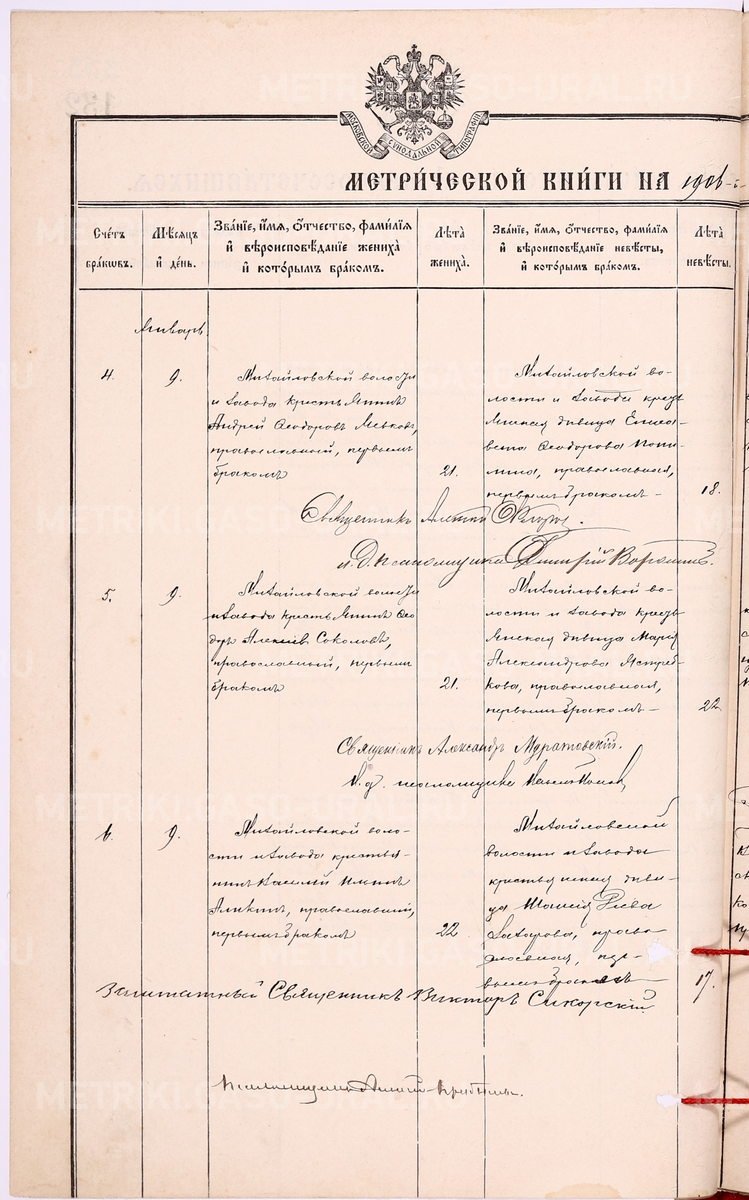 МОСКОВСКОЙ СѴНОДАЛЬНОЙ ТИПОГРАФІИ
МЕТРИ́ЧЕСКОЙ КНИ́ГИ НА 1906-й
Сче́тъ бра́кѡвъ.
Мѣ́сяцъ и҆ де́нь.
Зва́нїе, и҆́мя, ѻ҆́тчество, фами́лїя
и҆ вѣроисповѣ́данїе жениха̀
и҆ кото́рымъ бра́комъ.
Лѣ́та жениха̀.
Зва́нїе, и҆́мя, ѻ҆́тчество, фами́лїя
и҆ вѣроисповѣ́данїе невѣ́сты,
и҆ кото́рымъ бра́комъ.
Лѣ́та невѣ́сты.
Январь
4.
9.
Михайловской волости
и завода крестьянинъ
Андрей Ѳеодоровъ
православный, первымъ
бракомъ
21.
Михайловской во-
лости и завода кресть
янская дѣвица Елиса-
вета Ѳеодорова
православная,
первымъ бракомъ –
18.
Священникъ
и. д. псаломщика Димитрій
5.
9.
Михайловской волости
и завода крестьянинъ Ѳео
доръ Алексіевъ Соколовъ,
православный, первымъ
бракомъ
21.
Михайловской во-
лости и завода кресть
янская дѣвица Марія
Александрова Ястреб-
кова, православная,
первымъ бракомъ –
22
Священникъ Александръ Муратовскій.
И. д. псаломщика
6.
9.
Михайловской воло-
сти и завода крестья-
нинъ Василій
православный,
первымъ бракомъ
22
Михайловской
волости и завода
крестьянская дѣви-
ца
Захарова, право-
славная, пер-
вымъ бракомъ
17.
Заштатный Священникъ Викторъ Сикорскій
Псаломщикъ
METRIKI.GASO-URAL.RU